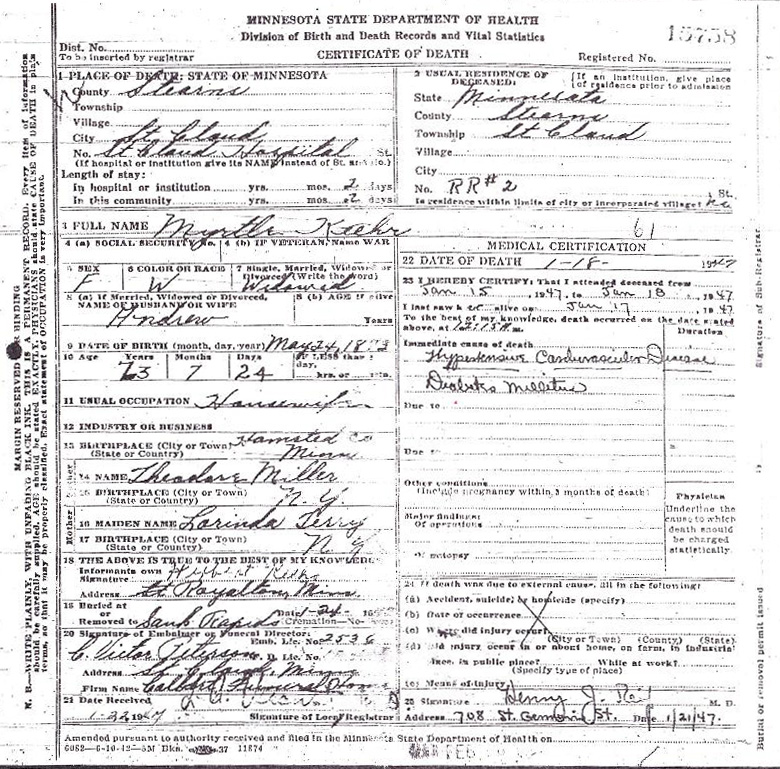 MINNESOTA STATE DEPARTMENT OF HEALTH
Division of Birth and Death Records and Vital Statistics
CERTIFICATE OF DEATH
15758
Dist. No.
To be inserted by registrar
Registered No.
1 PLACE OF DEATH: STATE OF MINNESOTA
County Stearns
Township
Village
City St Cloud
No. St Cloud Hospital St.
(If hospital or institution give its NAME instead of St. and No.)
Length of stay:
In hospital or institution yrs. mos. 2 days
In this community yrs. mos. 2 days
2 USUAL RESIDENCE OF DECEASED: (If an institution, give place of residence prior to admission
State Minnesota
County Stearns
Township St Cloud
Village
City
No. RR#2 St.
Is residence within limits of city or incorporated village? No
3 FULL NAME Myrtle Kiehr
61
4 (a) SOCIAL SECURITY No. 4 (b) IF VETERAN, Name WAR
5 SEX F
6 COLOR OR RACE W
7 Single, Married, Widowed or Divorced (Write the word) Widowed
8 (a) If Married, Widowed or Divorced, NAME OF HUSBAND or WIFE Andrew
8 (b) AGE if alive Years
9 DATE OF BIRTH (month, day, year) May 24, 1873
10 Age Years Months Days IF LESS than 1 day, hrs. or min.
73 7 24
11 USUAL OCCUPATION Housewife
12 INDUSTRY OR BUSINESS
13 BIRTHPLACE (City or Town) (State or Country) Minn
Father
14 NAME Theodore Miller
15 BIRTHPLACE (City or Town) (State or Country) N Y
Mother
16 MAIDEN NAME Lorinda Terry
17 BIRTHPLACE (City or Town) (State or Country) N Y
18 THE ABOVE IS TRUE TO THE BEST OF MY KNOWLEDGE
Informants own Signature
Address Royalton, Minn
19 Buried at Removed to Sauk Rapids Date 1-24 Cremation—No
20 Signature of Embalmer or Funeral Director: Emb. Lic. No. 2536
C. Victor Peterson
Address St. Cloud, Minn
Firm Name Funeral Home
21 Date Received 1-22 1947
Signature of Local Registrar
MEDICAL CERTIFICATION
22 DATE OF DEATH 1-18- 1947
23 I HEREBY CERTIFY, That I attended deceased from
Jan 15, 1947, to Jan 18, 1947
I last saw her alive on Jan 17, 1947
To the best of my knowledge, death occurred on the date stated above, at 12:15 A m.
Duration
Immediate cause of death
Hypertensive Cardiovascular Disease
Diabetes Mellitus
Due to
Due to
Other conditions
(Include pregnancy within 3 months of death)
Major findings:
Of operations
Of autopsy
Physician
Underline the cause to which death should be charged statistically.
24 If death was due to external cause, fill in the following:
(a) Accident, suicide, or homicide (specify)
(b) Date of occurrence
(c) Where did injury occur?
(City or Town) (County) (State)
(d) Did injury occur in or about home, on farm, in industrial place, in public place? While at work?
(Specify type of place)
(e) Means of injury
25 Signature Henny J. M. D.
Address 708 St. Germain St. Date 1/21/47.
Amended pursuant to authority received and filed in the Minnesota State Department of Health on
FEB
MARGIN RESERVED FOR BINDING
N. B.—WRITE PLAINLY, WITH UNFADING BLACK INK. THIS IS A PERMANENT RECORD. Every item of information
should be carefully supplied. AGE should be stated EXACTLY. PHYSICIANS should state CAUSE OF DEATH in plain
terms, so that it may be properly classified. Exact statement of OCCUPATION is very important.
Signature of Sub-Registrar
Burial or removal permit issued